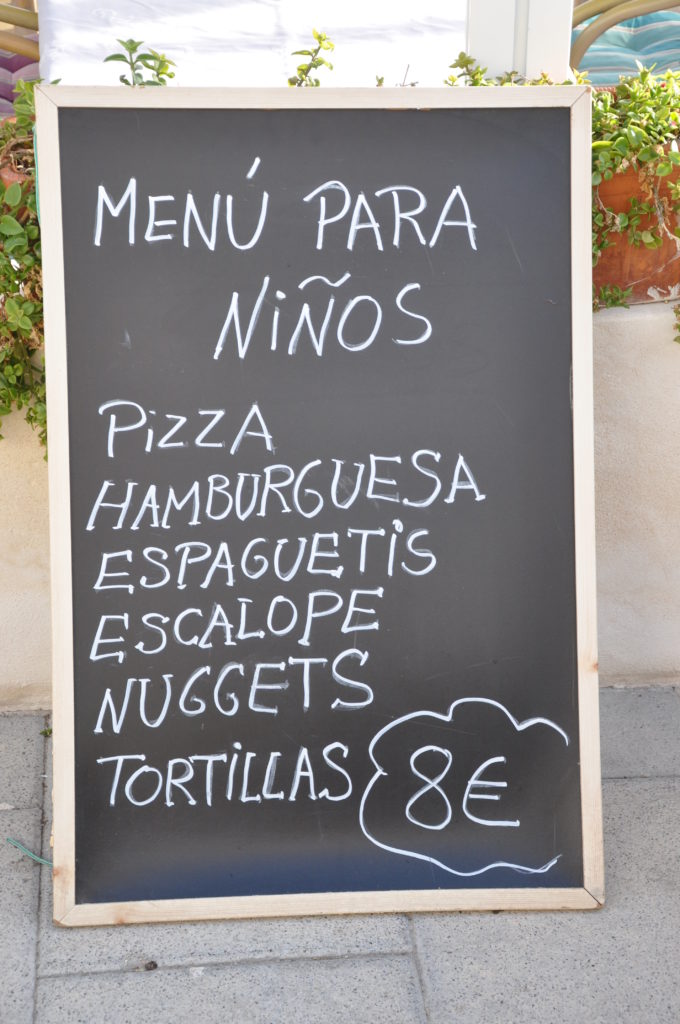 MENÚ PARA
NiÑOS
PiZZA
HAMBURGUESA
ESPAGUETiS
ESCALOPE
NUGGETS
TORTiLLAS 8€